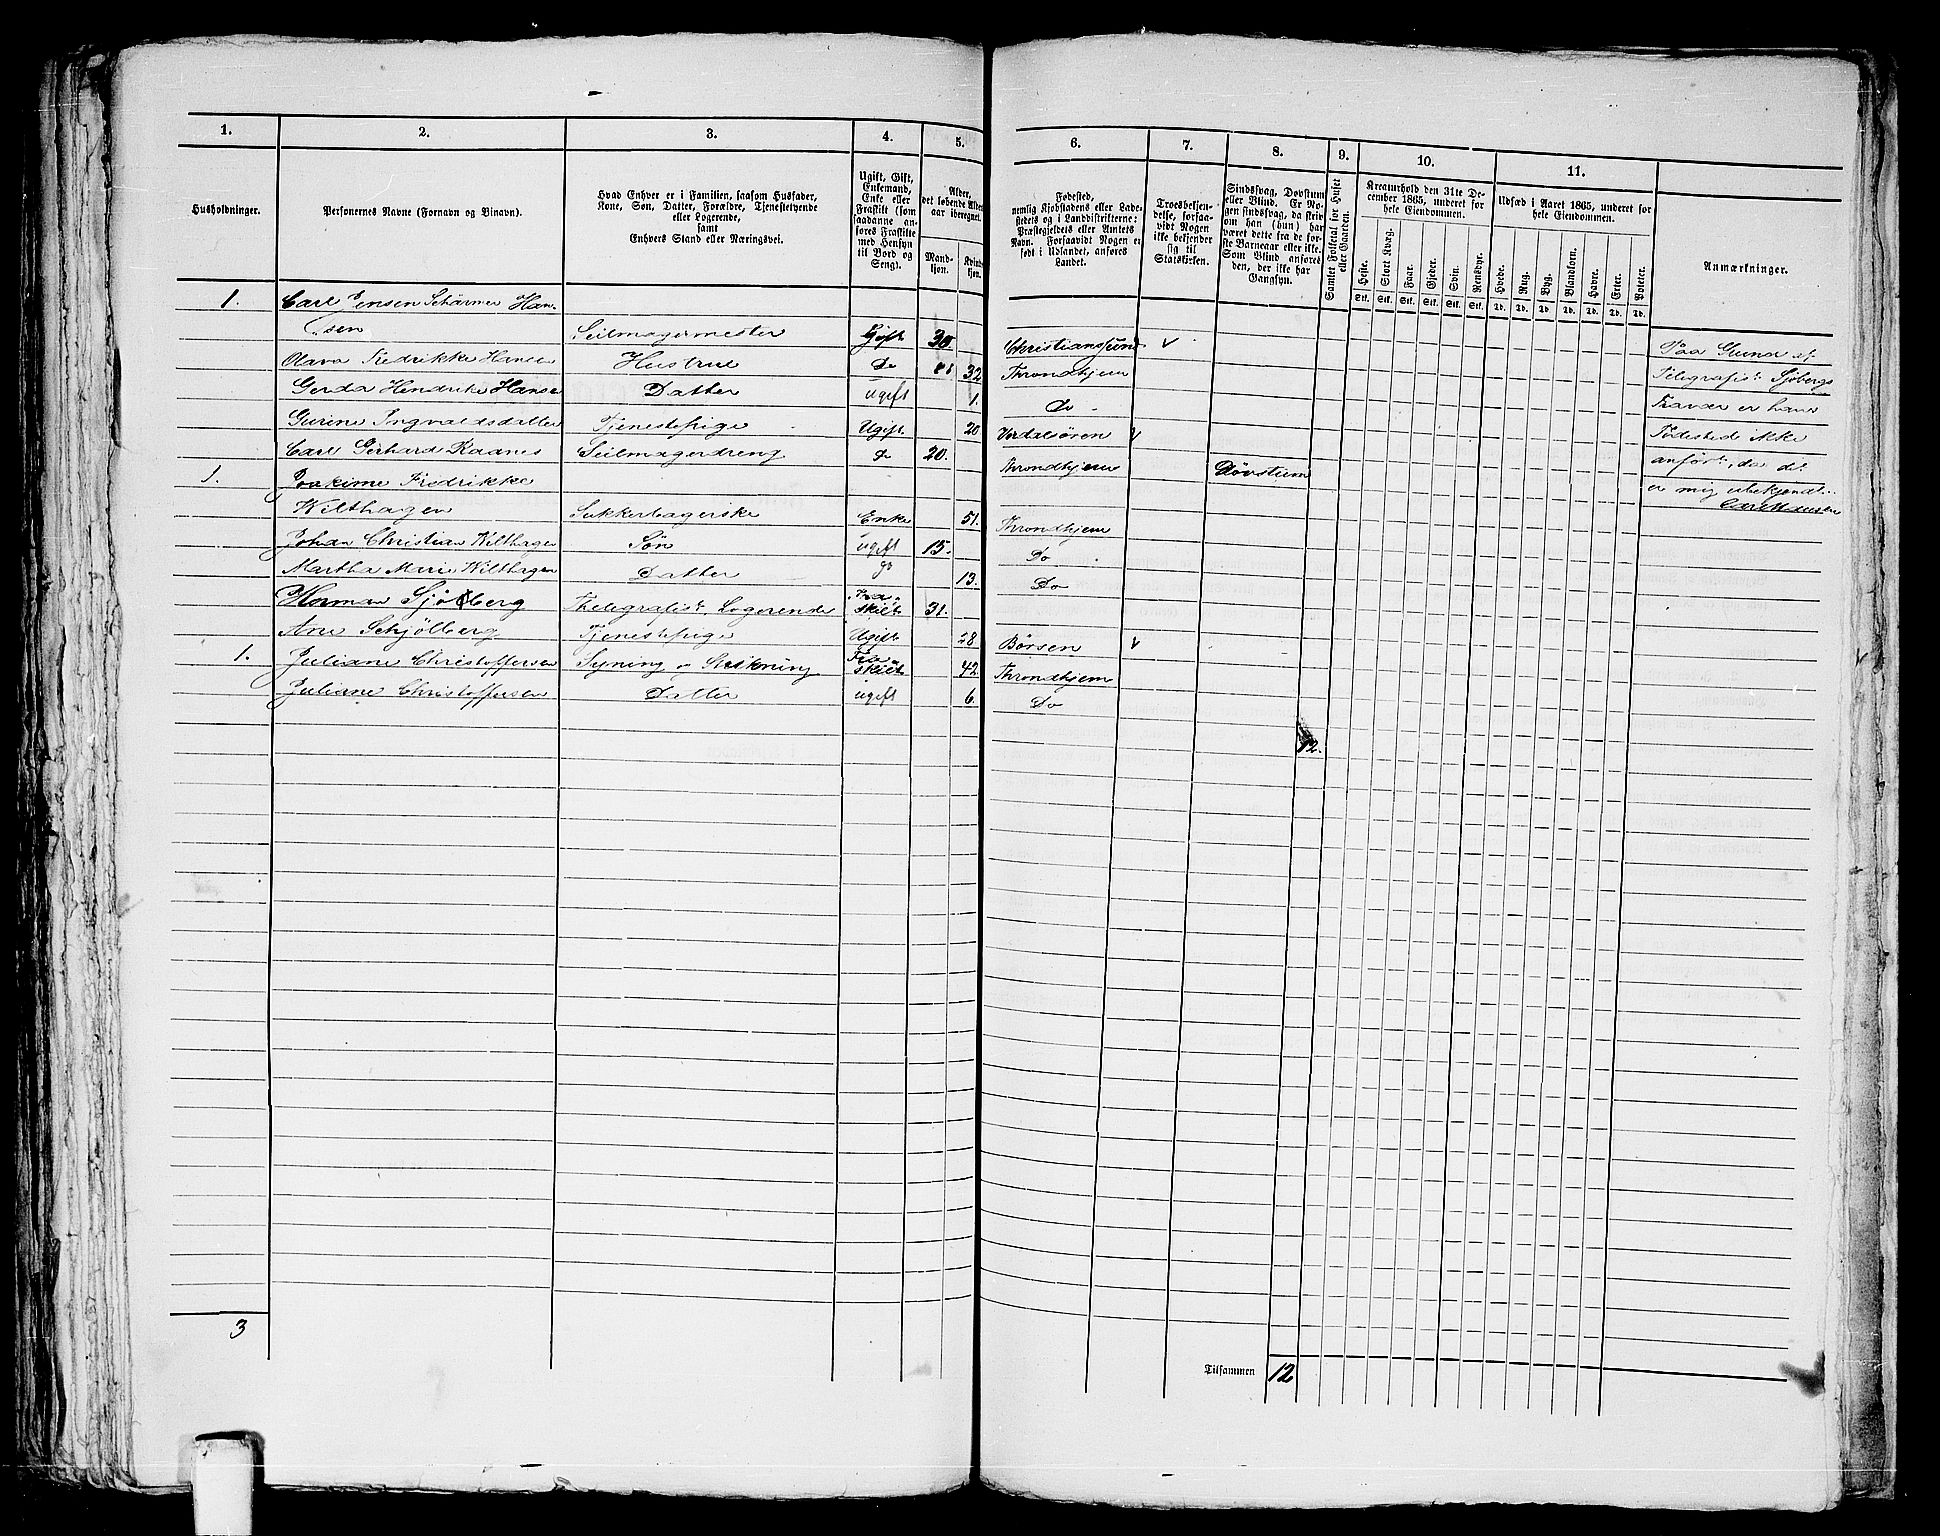 1. 2. 3. 4. 5. 6. 7. 8. 9. 10. 11.
Husholdninger.
Personernes Navne (Fornavn og Binavn).
Hvad Enhver er i Familien, saasom Husfader,
Kone, Søn, Datter, Forældre, Tjenestetyende
eller Logerende,
samt
Enhvers Stand eller Næringsvei.
Ugift, Gift,
Enkemand,
Enke eller
Fraskilt (som
saadanne an-
føres Fraskilte
med Hensyn
til Bord og
Seng).
Alder,
det løbende Alders-
aar iberegnet.
Mand-
kjøn.
Kvinde-
kjøn.
Fødested,
nemlig Kjøbstadens eller Lade-
stedets og i Landdistrikterne:
Præstegjeldets eller Amtets
Navn. Forsaavidt Nogen er
født i Udlandet, anføres
Landet.
Troesbekjen-
delse, forsaa-
vidt Nogen
ikke bekjender
sig til
Statskirken.
Sindssvag, Døvstum
eller Blind. Er No-
gen sindssvag, da skriv
om han (hun) har
været dette fra de før-
ste Barneaar eller ikke.
Som Blind anføres
den, der ikke har
Gangsyn.
Samlet Folketal for Huset
eller Gaarden.
Kreaturhold den 31te De-
cember 1865, underet for
hele Eiendommen.
Heste. Stort Kvæg. Faar. Gjeder. Svin. Rensdyr.
Stk. Stk. Stk. Stk. Stk. Stk.
Udsæd i Aaret 1865, underet for
hele Eiendommen.
Hvede. Rug. Byg. Blandkorn. Havre. Erter. Poteter.
Td. Td. Td. Td. Td. Td. Td.
Anmærkninger.
1. Carl Jensen Schärmer Han-
sen Seilmagermester Gift 30 Christianssund v
Olava Fredrikke Hansen Hustrue Do 32 Throndhjem
Gerda Hendrike Hansen Datter ugift 1. Do
Gurine Ingvaldsdatter Tjenestepige Ugift 20 Værdalsøren v
Carl Gerhard Raanes Seilmagerdreng Do 20. Throndhjem Døvstum
1. Joakime Fredrikke
Wilthagen Sukkerbagerske Enke 51. Throndhjem
Johan Christian Wilthagen Søn ugift 15. Do
Martha Marie Wilthagen Datter do 13. Do
Herman Sjöberg Thelegrafist, Logerende Fra-
skilt 31.
Ane Schjölberg Tjenestepige Ugift 28 Børsen v
1. Juliane Christoffersen Syning o Strikning Fra-
skilt 42 Throndhjem
Juliane Christoffersen Datter ugift 6. Do
12.
Paa Grund af
Telegrafist Sjöbergs
Fravær er hans
Fødested ikke
anført, da det
er mig ubekjendt.
Carl Hansen
3
Tilsammen 12